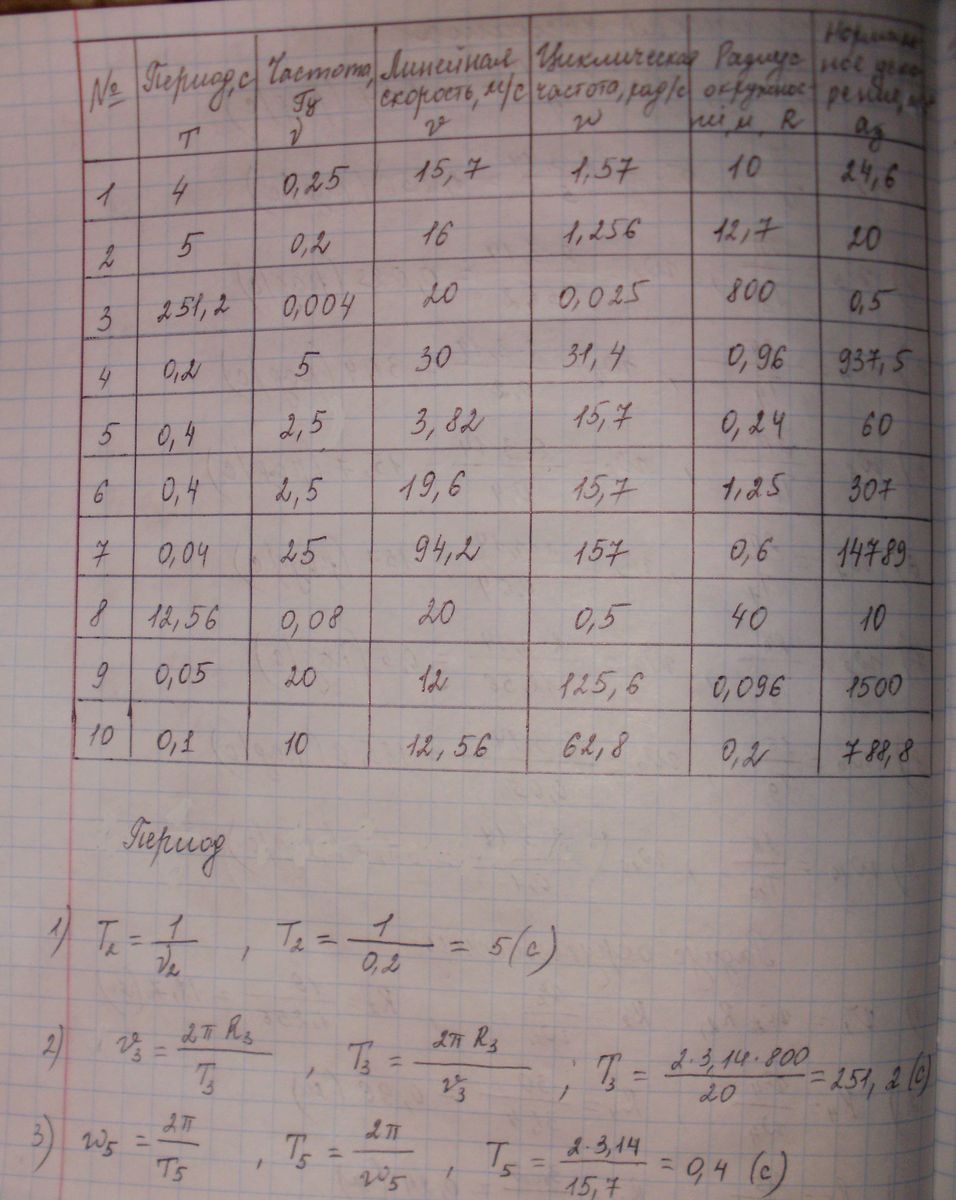 № Период, с T Частота, Гц ν Линейная скорость, м/с v Циклическая частота, рад/с w Радиус окружнос- ти, м, R
1 4 0,25 15,7 1,57 10 24,6
2 5 0,2 16 1,256 12,7 20
3 251,2 0,004 20 0,025 800 0,5
4 0,2 5 30 31,4 0,96 937,5
5 0,4 2,5 3,82 15,7 0,24 60
6 0,4 2,5 19,6 15,7 1,25 307
7 0,04 25 94,2 157 0,6 14789
8 12,56 0,08 20 0,5 40 10
9 0,05 20 12 125,6 0,096 1500
10 0,1 10 12,56 62,8 0,2 788,8
Период
1) T₂ = 1/ν₂ , T₂ = 1/0,2 = 5 (с)
2) v₃ = 2π R₃/T₃ , T₃ = 2π R₃/v₃ ; T₃ = 2·3,14·800/20 = 251,2 (с)
3) w₅ = 2π/T₅ , T₅ = 2π/w₅ , T₅ = 2·3,14/15,7 = 0,4 (с)